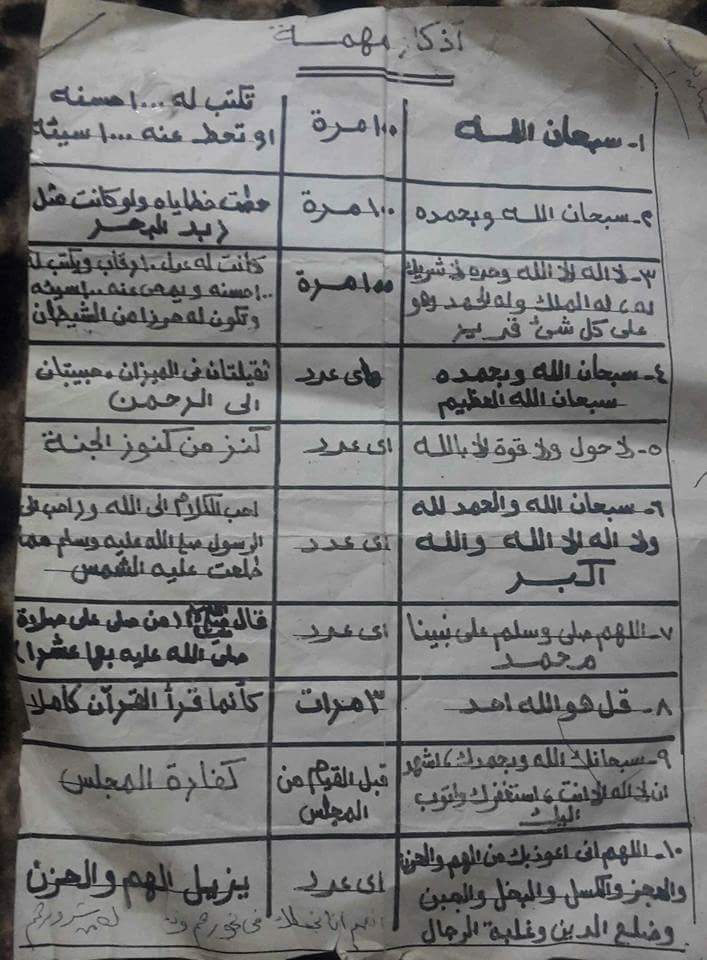 أذكار مهمة
١- سبحان الله
١٠٠ مرة
تكتب له ١٠٠٠ حسنه
او تحط عنه ١٠٠٠ سيئه
٢- سبحان الله وبحمده
١٠٠ مرة
حطت خطاياه ولو كانت مثل
زبد البحر
٣- لا اله الا الله وحده لا شريك
له، له الملك وله الحمد وهو
على كل شئ قدير
١٠٠ مرة
كانت له عدل ١٠ رقاب ويكتب له
١٠٠ حسنه و يمحى عنه ١٠٠ سيئه
وتكون له حرزا من الشيطان
٤- سبحان الله وبحمده
سبحان الله العظيم
اى عدد
ثقيلتان فى الميزان، حبيبتان
الى الرحمن
٥- لا حول ولا قوة الا بالله
اى عدد
كنز من كنوز الجنة
٦- سبحان الله والحمد لله
ولا اله الا الله والله
اكبر
اى عدد
احب الكلام الى الله واحب الى
الرسول صلى الله عليه وسلم مما
طلعت عليه الشمس
٧- اللهم صلى وسلم على نبينا
محمد
اى عدد
قال ﷺ (من صلى على صلاوة
صلى الله عليه بها عشرا)
٨- قل هو الله احد
٣ مرات
كأنما قرأ القرآن كاملا
٩- سبحانك الله وبحمدك، اشهد
ان لا اله الا انت، استغفرك واتوب
اليك
قبل القيام من
المجلس
كفارة المجلس
١٠- اللهم انى اعوذبك من الهم والحزن
والعجز والكسل والبخل والجبن
وضلع الدين وغلبة الرجال
اى عدد
يزيل الهم والحزن
اللهم انا نجعلك فى نحورهم شرورهم